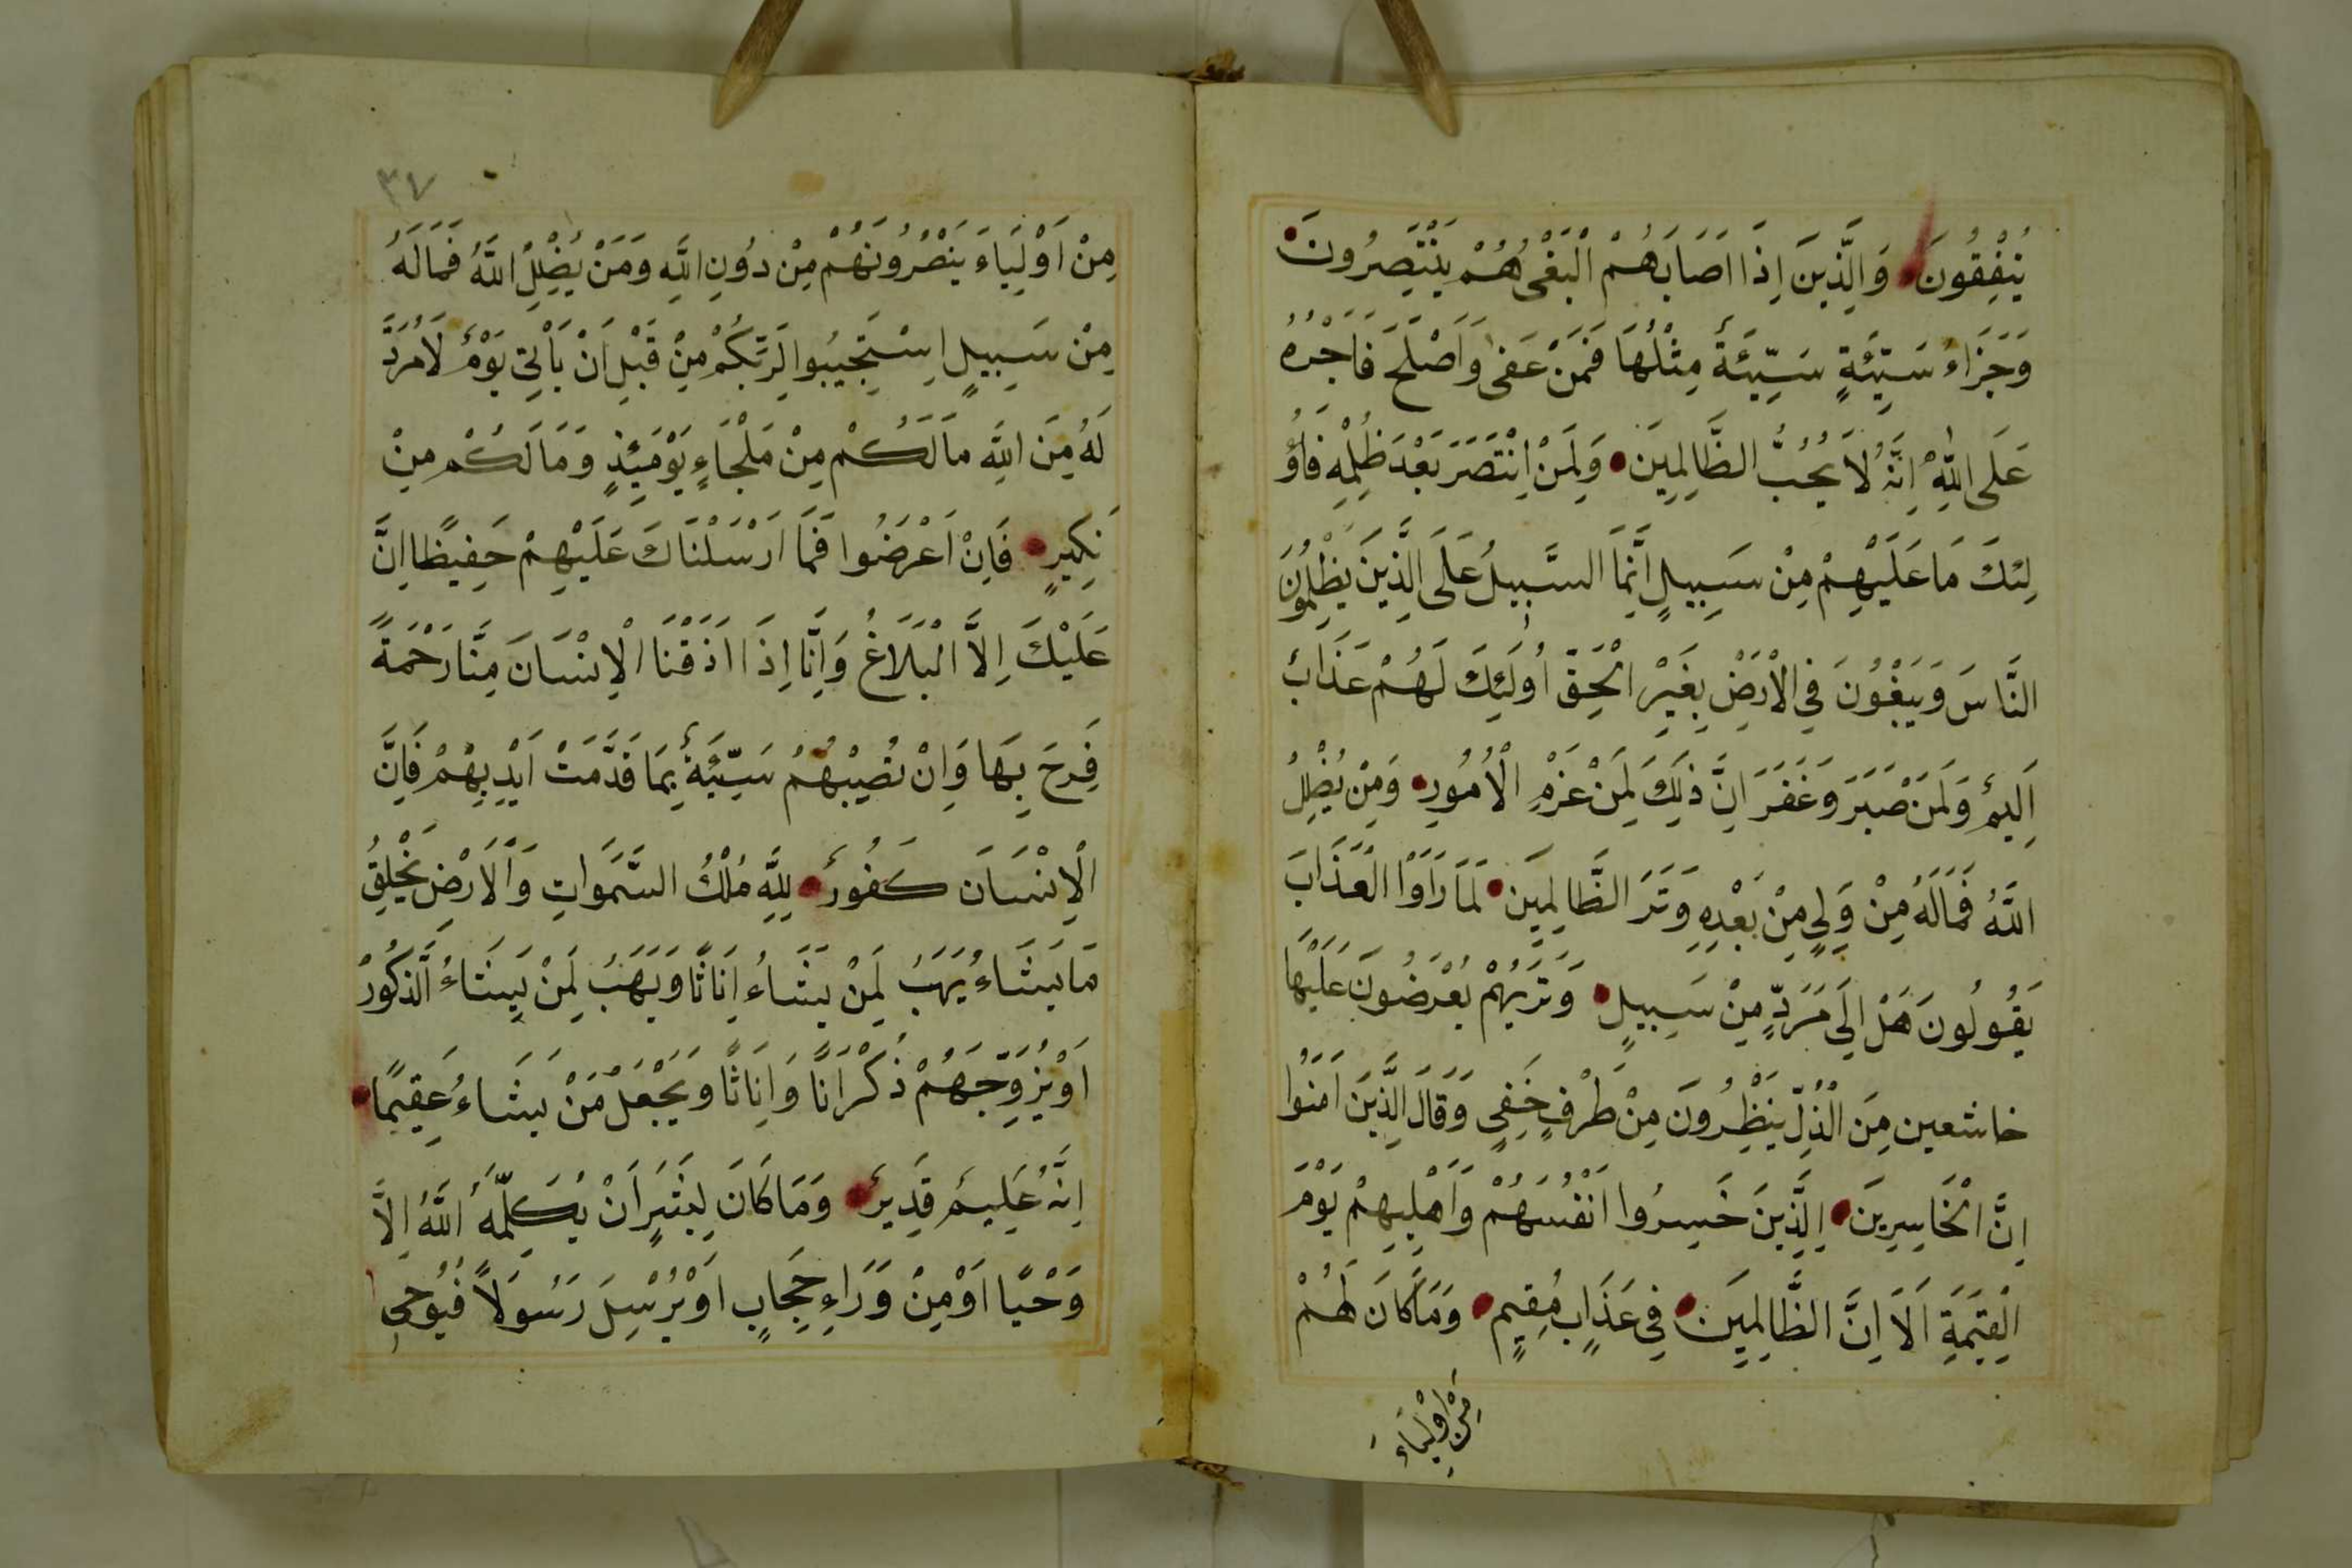 يُنْفِقُونَ وَالَّذِينَ اِذَا اَصَابَهُمْ الْبَغْىُ هُمْ يَنْتَصِرُونَ
وَجَزَاءُ سَيِّئَةٍ سَيِّئَةٌ مِثْلُهَا فَمَنْ عَفٰى وَاَصْلَحَ فَاَجْرُهُ
عَلَى اللّٰهِ اِنَّهُ لَا يُحِبُّ الظَّالِمِينَ وَلَمَنْ اِنْتَصَرَ بَعْدَ ظُلْمِهِ فَاُو
لٰئِكَ مَا عَلَيْهِمْ مِنْ سَبِيلٍ اِنَّمَا السَّبِيلُ عَلَى الَّذِينَ يَظْلِمُونَ
النَّاسَ وَيَبْغُونَ فِي الْاَرْضِ بِغَيْرِ الْحَقِّ اُولَئِكَ لَهُمْ عَذَابٌ
اَلِيمٌ وَلَمَنْ صَبَرَ وَغَفَرَ اِنَّ ذٰلِكَ لَمِنْ عَزْمِ الْاُمُورِ وَمَنْ يُضْلِلُ
اللّٰهُ فَمَالَهُ مِنْ وَلِيٍ مِنْ بَعْدِهِ وَتَرَ الظَّالِمِينَ لَمَا رَاَوْا الْعَذَابَ
يَقُولُونَ هَلْ اِلَى مَرَدٍّ مِنْ سَبِيلٍ وَتَرَيهُمْ يُعْرَضُونَ عَلَيْهَا
خاشعين مِنَ الذُّلِّ يَنْظِرُونَ مِنْ طَرْفٍ خَفِيٍ وَقَالَ الَّذِينَ اَمَنُوا
اِنَّ الْخَاسِرِينَ الَّذِينَ خَسِرُوا اَنْفُسَهُمْ وَاَهْلِيهِمْ يَوْمَ
الْقِيَمَةِ اَلَا اِنَّ الظَّالِمِينَ فِي عَذَابٍ مُقِيمٍ وَمَا كَانَ لَهُمْ
مِنْ اَوْلِيَاءَ
٣٧
مِنْ اَوْلِيَاءَ يَنْصُرُونَهُمْ مِنْ دُونِ اللّٰهِ وَمَنْ يُضْلِلِ اللّٰهُ فَمَالَهُ
مِنْ سَبِيلٍ اِسْتَجِيبُوا لِرَبِّكُمْ مِنْ قَبْلِ اَنْ يَاْتِىَ يَوْمٌ لَا مَرَدَّ
لَهُ مِنَ اللّٰهِ مَا لَكُمْ مِنْ مَلْجَاءٍ يَوْمَئِذٍ وَمَا لَكُمْ مِنْ
نَكِيرٍ فَاِنْ اَعْرَضُوا فَمَا اَرْسَلْنَاكَ عَلَيْهِمْ حَفِيظًا اِنَّ
عَلَيْكَ اِلَّا الْبَلَاغُ وَاِنَّا اِذَا اَذَقْنَا الْاِنْسَانَ مِنَّا رَحْمَةً
فَرِحَ بِهَا وَاِنْ تُصِيبْهُمْ سَيِّئَةٌ بِمَا قَدَّمَتْ اَيْدِيهِمْ فَاِنَّ
الْاِنْسَانَ كَفُورٌ لِلّٰهِ مُلْكُ السَّمَوَاتِ وَالْاَرْضِ يَخْلِقُ
مَا يَشَاءُ يَهَبُ لِمَنْ يَشَاءُ اِنَاثًا وَيَهَبُ لِمَنْ يَشَاءُ الَّذكُورُ
اَوْ يُزَوِّجَهُمْ ذُكْرَانًا وَاِنَاثًا وَيَجْعَلُ مَنْ يَشَاءُ عَقِيمًا
اِنَّهُ عَلِيمٌ قَدِيرٌ وَمَا كَانَ لِبَشَرٍ اَنْ يُكَلِّمَهُ اللّٰهُ اِلَّا
وَحْيًا اَوْ مِنْ وَرَاءِ حِجَابٍ اَوْ يُرْسِلَ رَسُولًا فَيُوحِىَ